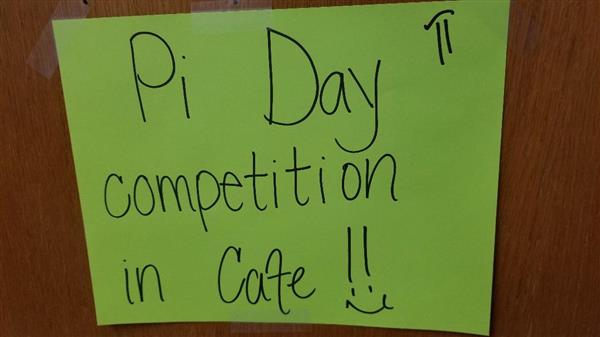 Pi Day π
competition
in Cafe !!